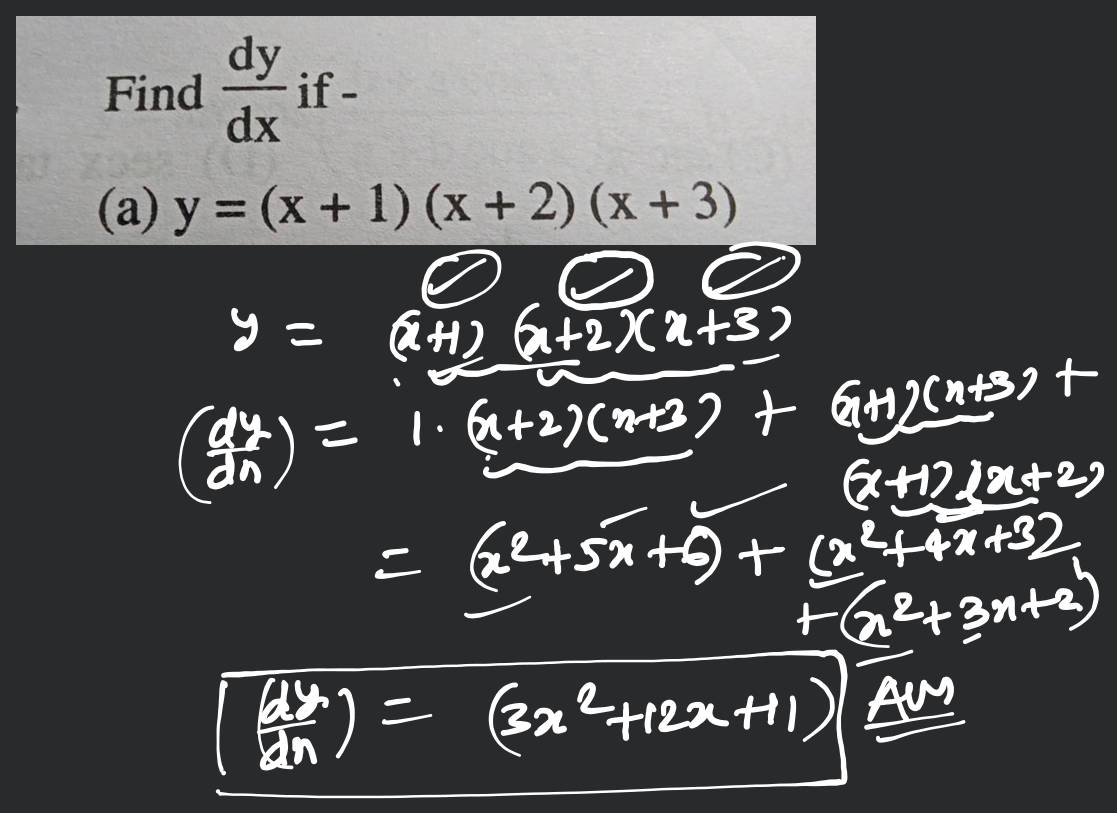 Find dy/dx if -
(a) y = (x + 1) (x + 2) (x + 3)
y = (x+1) (x+2)(x+3)
(dy/dx) = 1. (x+2)(x+3) + (x+1)(x+3) +
(x+1)(x+2)
= (x²+5x+6) + (x²+4x+3)
+(x²+3x+2)
(dy/dx) = (3x²+12x+11) Ans